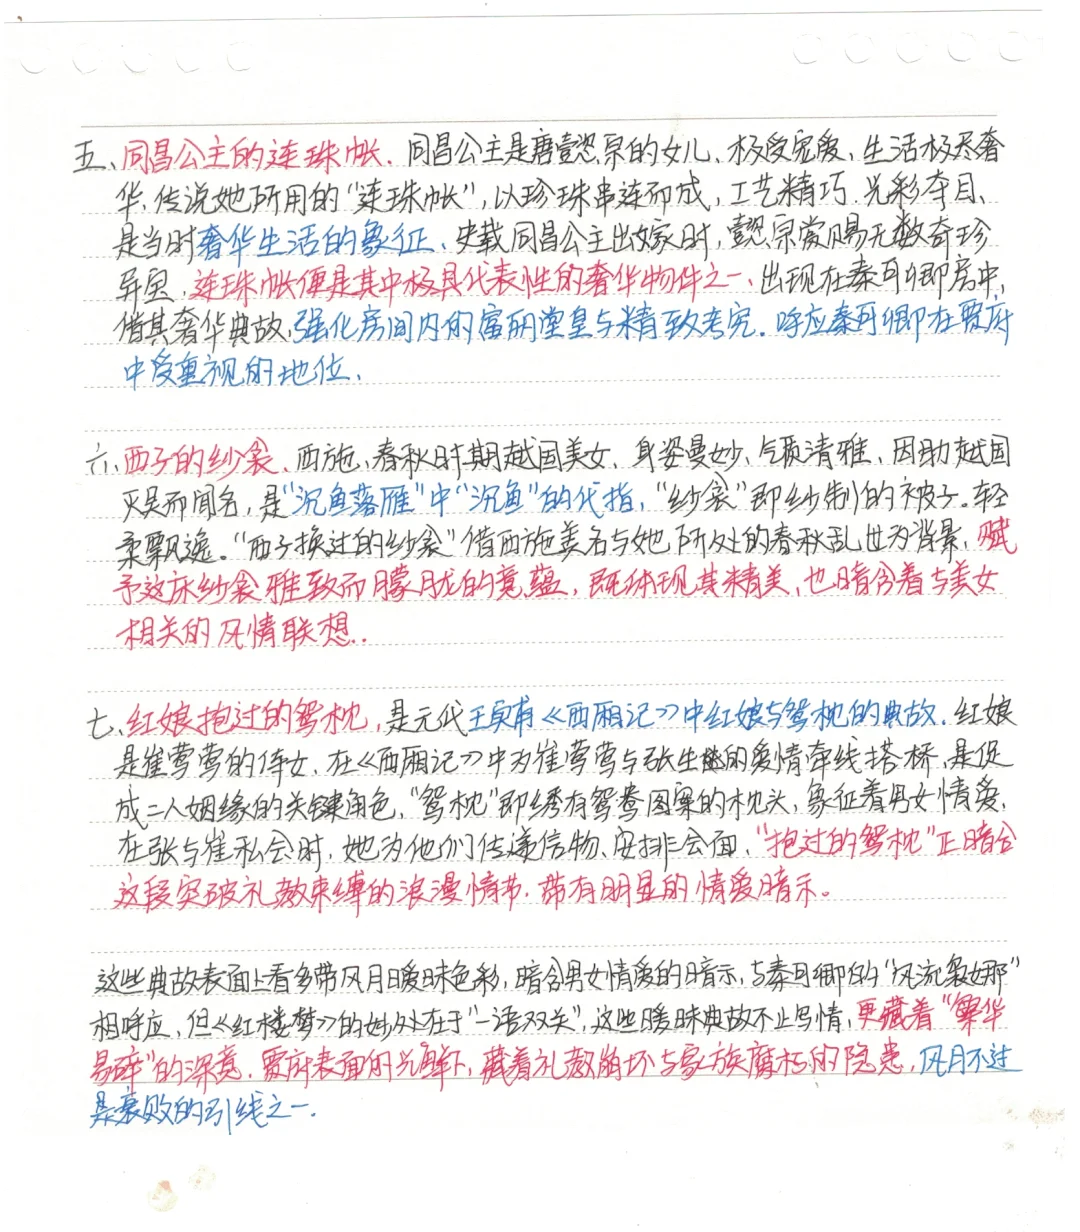 五、同昌公主的连珠帐、同昌公主是唐懿宗的女儿、极受宠爱、生活极尽奢
华、传说她所用的“连珠帐”，以珍珠串连而成，工艺精巧、光彩夺目、
是当时奢华生活的象征、史载同昌公主出嫁时，懿宗赏赐无数奇珍
异宝，连珠帐便是其中极具代表性的奢华物件之一、出现在秦可卿房中，
借其奢华典故，强化房间内的富丽堂皇与精致考究．呼应秦可卿在贾府
中受重视的地位、
六、西子的纱衾、西施，春秋时期越国美女、身姿曼妙、气质清雅、因助越国
灭吴而闻名，是“沉鱼落雁”中“沉鱼”的代指，“纱衾”即纱制的被子。轻
柔飘逸。“西子换过的纱衾”借西施美名与她所处的春秋乱世为背景，赋
予这床纱衾雅致而朦胧的意蕴，既体现其精美、也暗含着与美女
相关的风情联想．.
七、红娘抱过的鸳枕，是元代王实甫《西厢记》中红娘与鸳枕的典故．红娘
是崔莺莺的侍女、在《西厢记》中为崔莺莺与张生的爱情牵线搭桥，是促
成二人姻缘的关键角色，“鸳枕”即绣有鸳鸯图案的枕头，象征着男女情爱，
在张与崔私会时，她为他们传递信物、安排会面、“抱过的鸳枕”正暗合
这段突破礼教束缚的浪漫情节．带有明显的情爱暗示。
这些典故表面上看多带风月暧昧色彩，暗含男女情爱的暗示，与秦可卿的“风流袅娜”
相呼应，但《红楼梦》的妙处在于“一语双关”，这些暧昧典故不止写情，更藏着“繁华
易碎”的深意．贾府表面的光鲜下，藏着礼教崩坏与家族腐朽的隐患，风月不过
是衰败的引线之一．